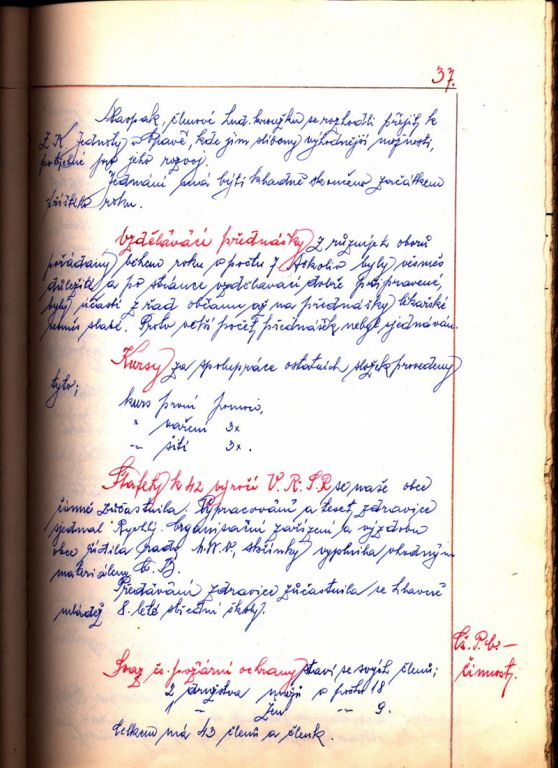 37.
Naopak, členové Lud. kroužku se rozhodli přejíti k
Z. K. Jednoty v Opavě, kde jim slíbeny výhodnější možnosti,
potřebné pro jeho rozvoj.
Jednání má býti kladně skončeno začátkem
příštího roku.
Vzdělávací přednášky z různých oborů
pořádány během roku v počtu 7. Ačkoliv byly vesměs
důležité a po stránce vzdělávací dobře připravené,
byly účastí z řad občanů až na přednášky lékařské
slabé. Proto větší počet přednášek nebyl sjednáván.
Kursy za spolupráce ostatních složek provedeny
tyto;
kurs první pomoci,
" vaření 3x
" šití 3x.
Štafety k 42 výročí V. Ř. S. R. se naše obec
účinně zúčastnila. Vypracování a text zdravice
sjednal Rychlý. Organisační zařízení a výzdobu
obce řídila rada M.N.V., skřínky vyplnila vhodným
materiálem O. B.
Předávání zdravice zúčastnila se hlavně
mládež 8. leté střední školy.
Čs. P. o. –
činnost.
Svaz čs. požární ochrany staví se svých členů;
2 družstva mužů o počtu 18
1 " žen " 9.
Celkem má 43 členů a členk.